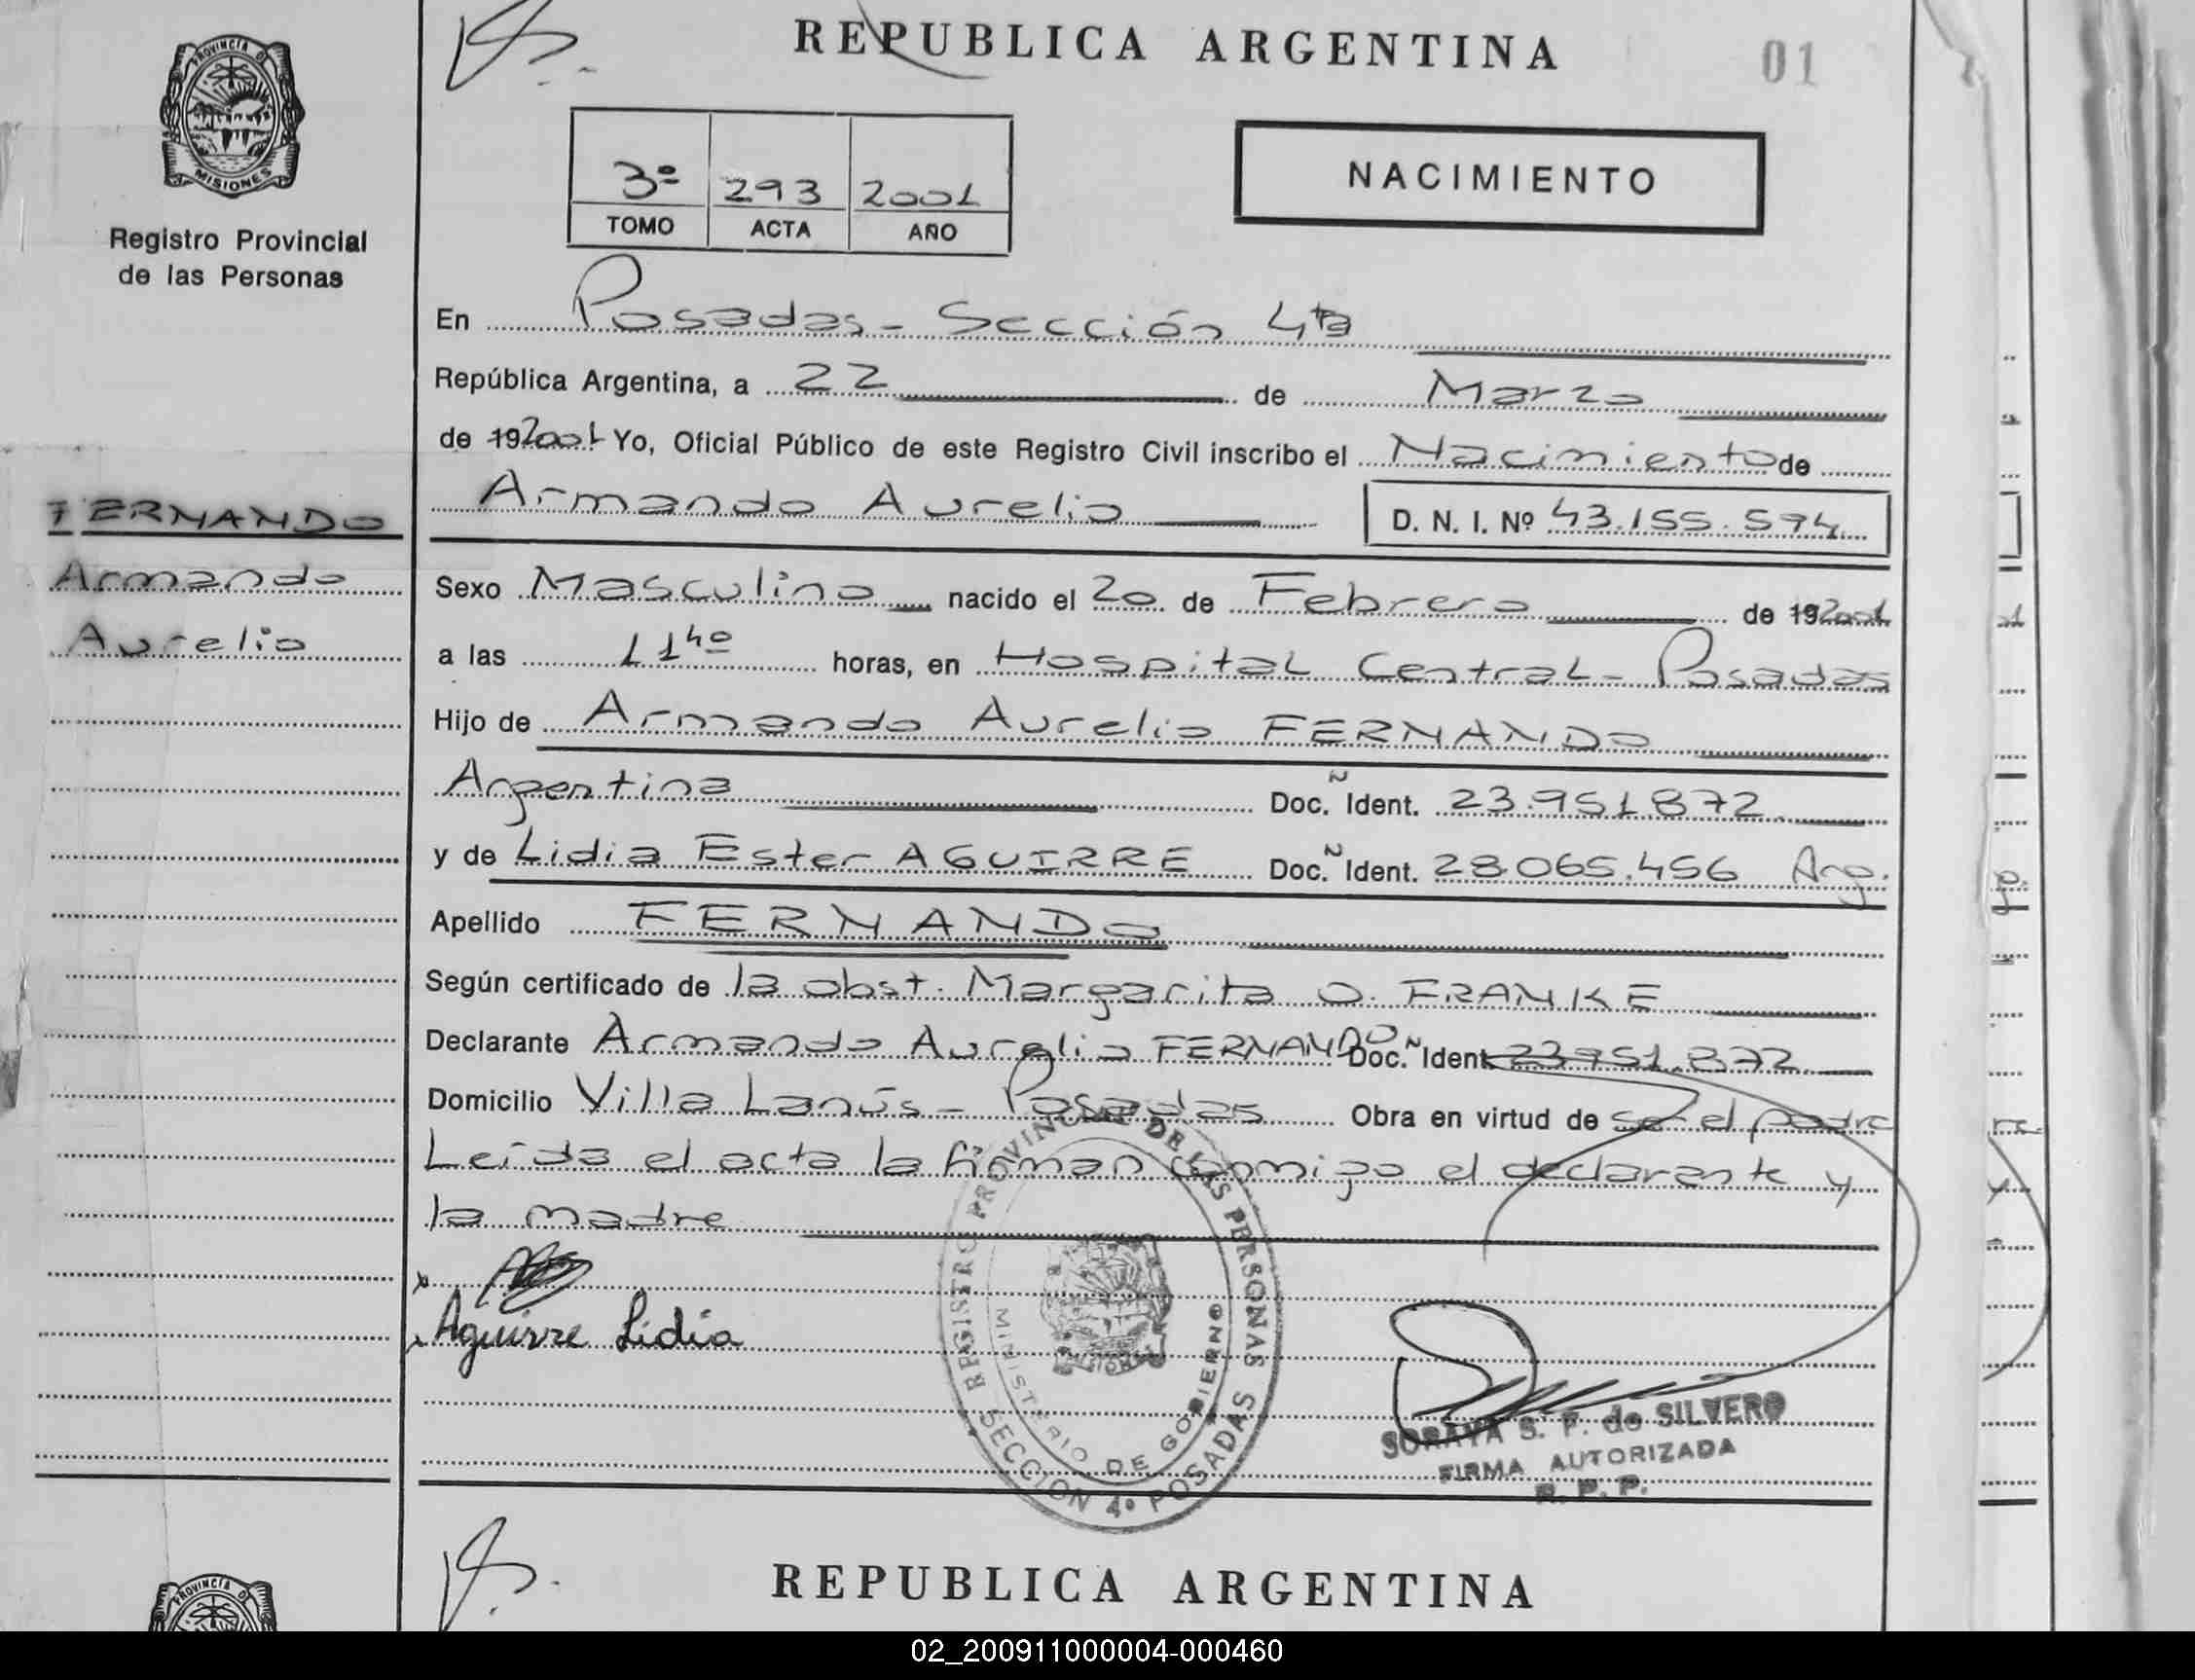 REPUBLICA ARGENTINA
01
PROVINCIA DE
MISIONES
Registro Provincial
de las Personas
3º 293 2001
TOMO ACTA AÑO
NACIMIENTO
En Posadas - Sección 4ta
República Argentina, a 22 de Marzo
de 19 2001 Yo, Oficial Público de este Registro Civil inscribo el Nacimiento de
Armando Aurelio D. N. I. Nº 43.155.594
FERNANDO
Armando
Aurelio
Sexo Masculino nacido el 20 de Febrero de 19 2001
a las 11 40 horas, en Hospital Central - Posadas
Hijo de Armando Aurelio FERNANDO
Argentina Doc. Ñ Ident. 23.951.872
y de Lidia Ester AGUIRRE Doc. Ñ Ident. 28.065.456 Arg.
Apellido FERNANDO
Según certificado de la obst. Margarita O. FRANKE
Declarante Armando Aurelio FERNANDO Doc. Ñ Ident 23.951.872
Domicilio Villa Lanús - Posadas Obra en virtud de ser el padre
Leída el acta la firman conmigo el declarante y
la madre
Aguirre Lidia
REGISTRO PROVINCIAL DE LAS PERSONAS
MINISTERIO DE GOBIERNO
SECCION 4º POSADAS
SORAYA S. F. de SILVERO
FIRMA AUTORIZADA
R. P. P.
PROVINCIA DE
REPUBLICA ARGENTINA
02_200911000004-000460